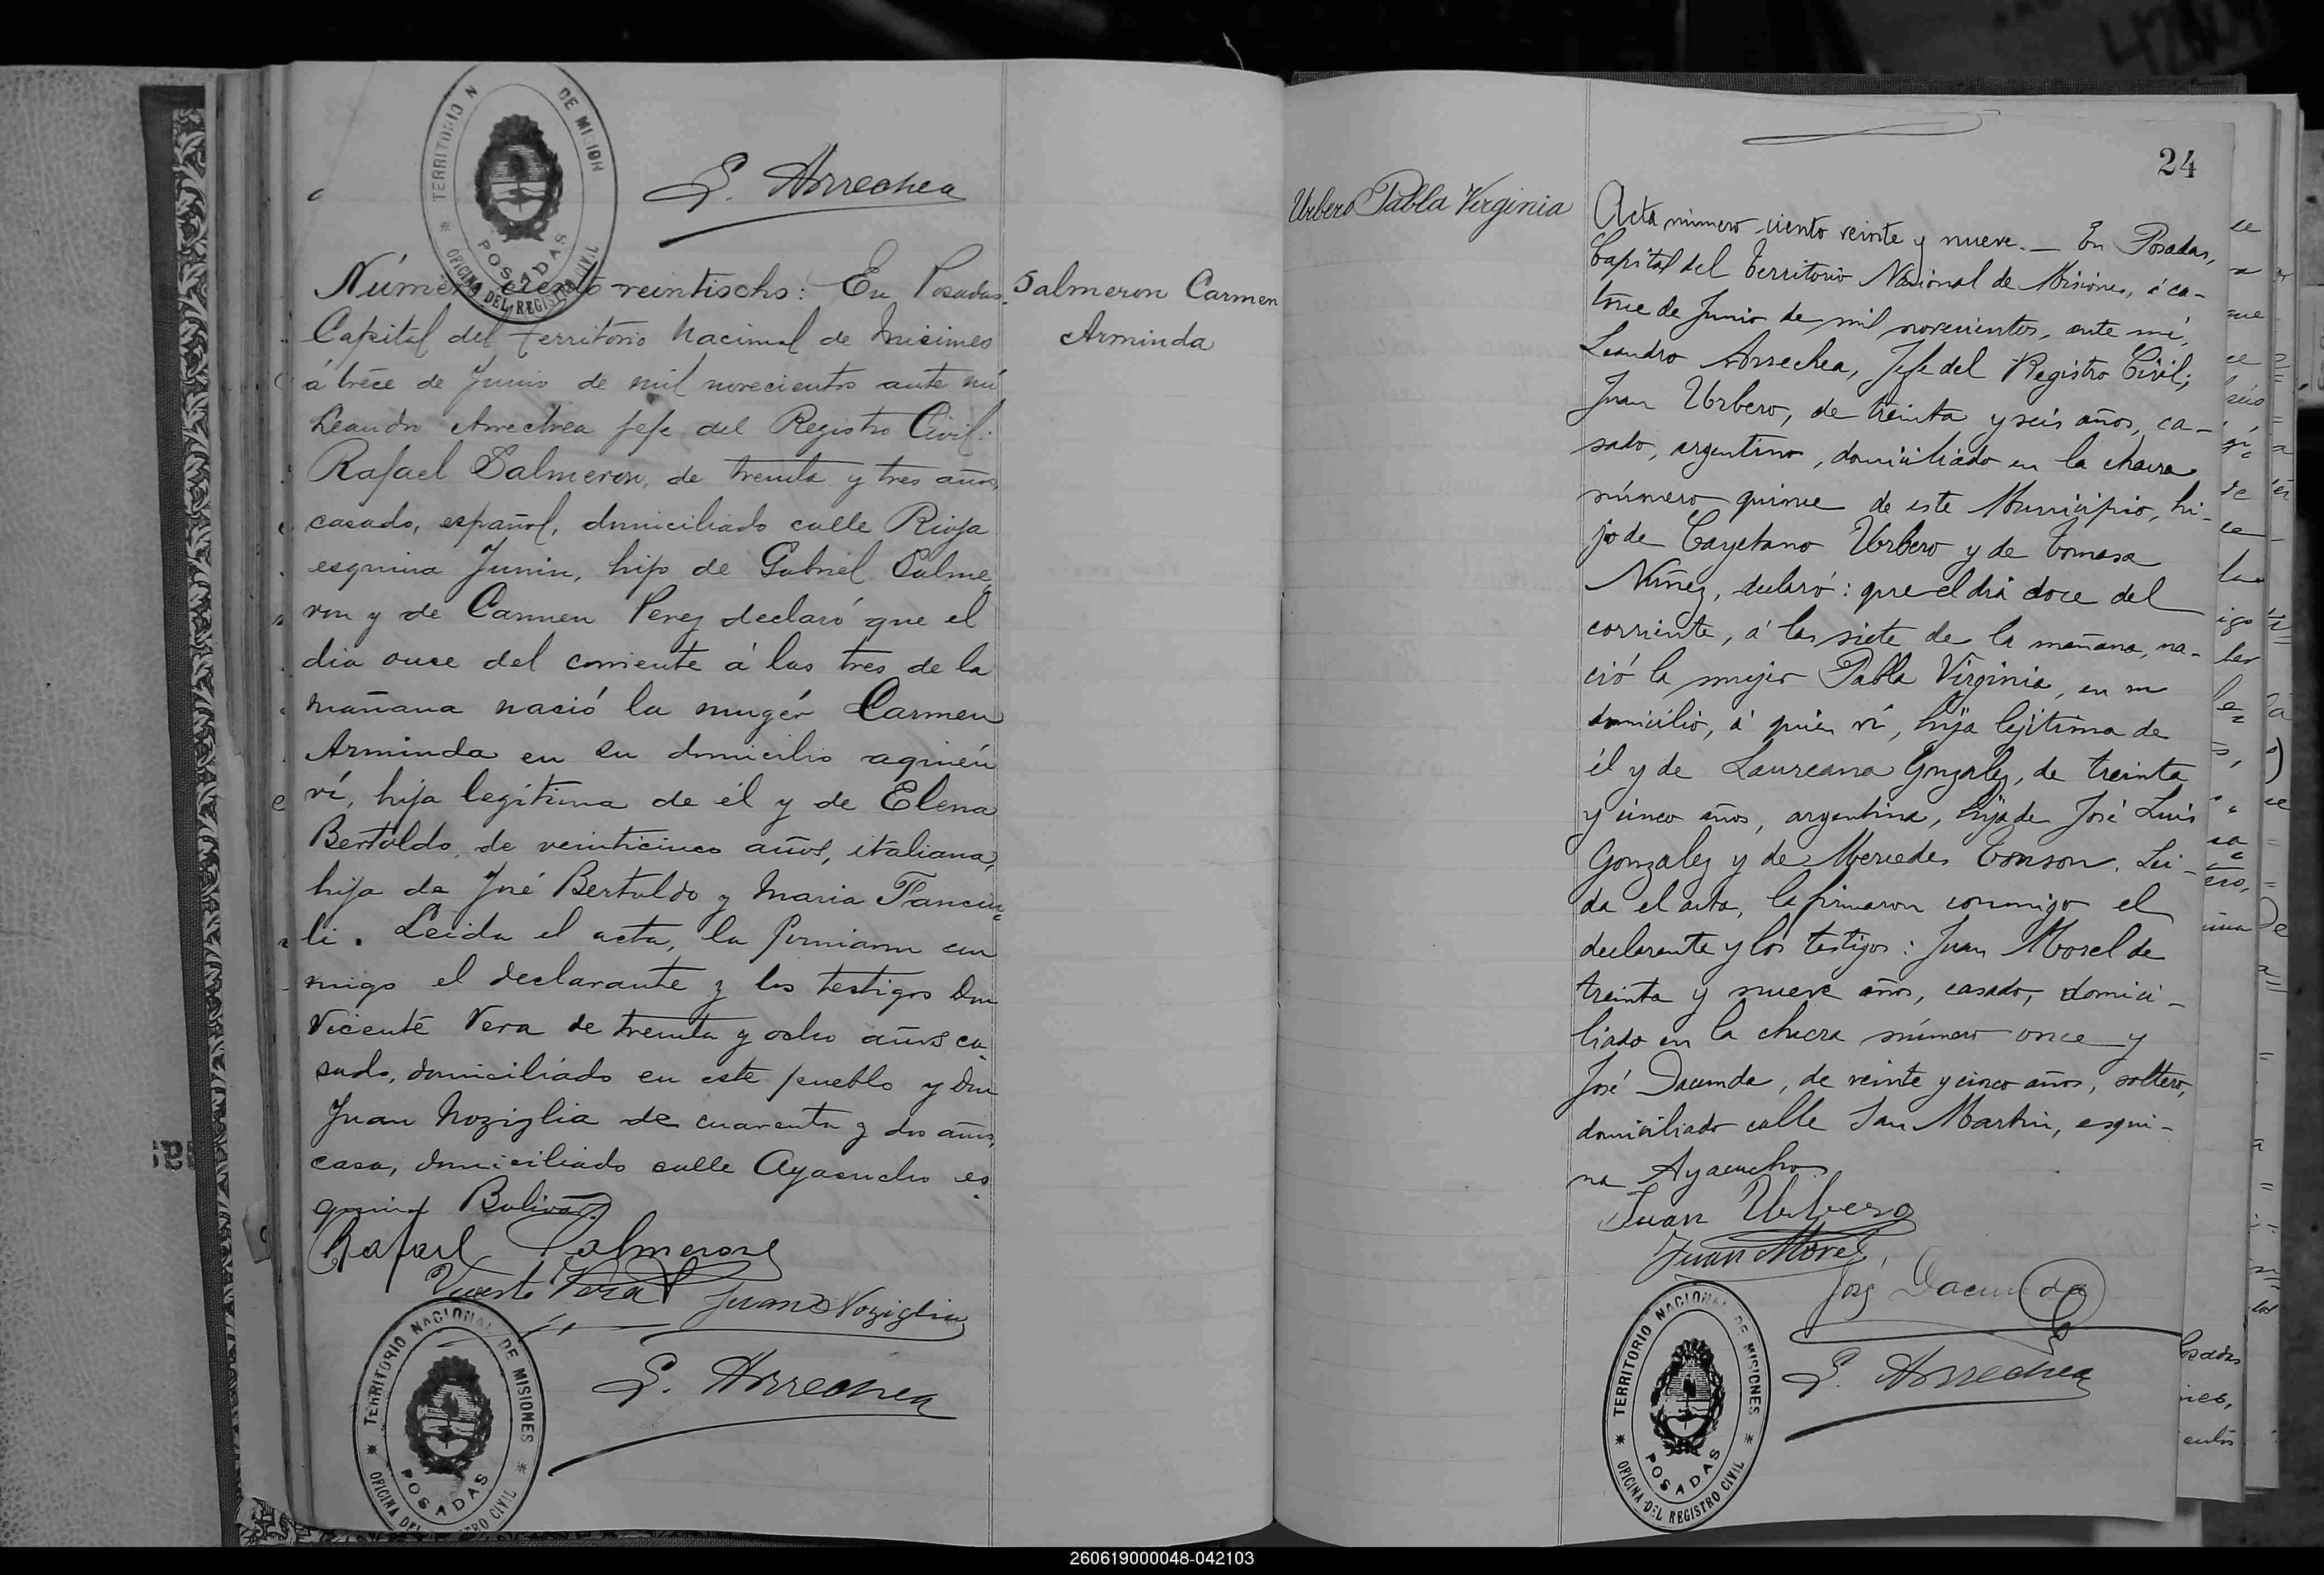 TERRITORIO N DE MISION
POSADAS
OFICINA DEL REGISTRO CIVIL
L. Arrechea
Número ciento veintiocho: En Posadas
Capital del territorio Nacional de Misiones
á trece de Junio de mil novecientos ante mí
Leandro Arrechea jefe del Registro Civil:
Rafael Salmeron, de treinta y tres años,
casado, español, domiciliado calle Rioja
esquina Junin, hijo de Gabriel Salme
ron y de Carmen Perez declaró que el
dia once del corriente á las tres de la
mañana nació la mugér Carmen
Arminda en su domicilio aquién
ví, hija legitima de él y de Elena
Bertoldo, de veinticinco años, italiana,
hija de José Bertoldo y Maria
li. Leida el acta, la firmaron con
migo el declarante y los testigos Don
Vicente Vera de treinta y ocho años ca
sado, domiciliado en este pueblo y Don
Juan Noziglia de cuarenta y dos años,
casa, domiciliado calle Ayacucho es
quina Bolivar.
Rafael Salmeron
Vicente Vera Juan Noziglia
L. Arrechea
TERRITORIO NACIONAL DE MISIONES
POSADAS
OFICINA DEL REGISTRO CIVIL
Salmeron Carmen
Arminda
24
Urbero Pabla Virginia
Acta número ciento veinte y nueve.— En Posadas,
Capital del Territorio Nacional de Misiones, á ca-
torce de Junio de mil novecientos, ante mí,
Leandro Arrechea, Jefe del Registro Civil;
Juan Urbero, de treinta y seis años, ca-
sado, argentino, domiciliado en la chacra
número quince de este Municipio, hi-
jo de Cayetano Urbero y de Tomasa
Nuñez, declaró: que el dia doce del
corriente, á las siete de la mañana, na-
ció la mujer Pabla Virginia, en su
domicilio, á quien ví, hija legitima de
él y de Laureana Gonzalez, de treinta
y cinco años, argentina, hija de José Luis
Gonzalez y de Mercedes Tonson. Lei-
da el acta, la firmaron conmigo el
declarante y los testigos: Juan Morel de
treinta y nueve años, casado, domici-
liado en la chacra número once y
José Dacunda, de veinte y cinco años, soltero,
domiciliado calle San Martin, esqui-
na Ayacucho
Juan Urbero
Juan Morel
José Dacunda
L. Arrechea
TERRITORIO NACIONAL DE MISIONES
POSADAS
OFICINA DEL REGISTRO CIVIL
260619000048-042103